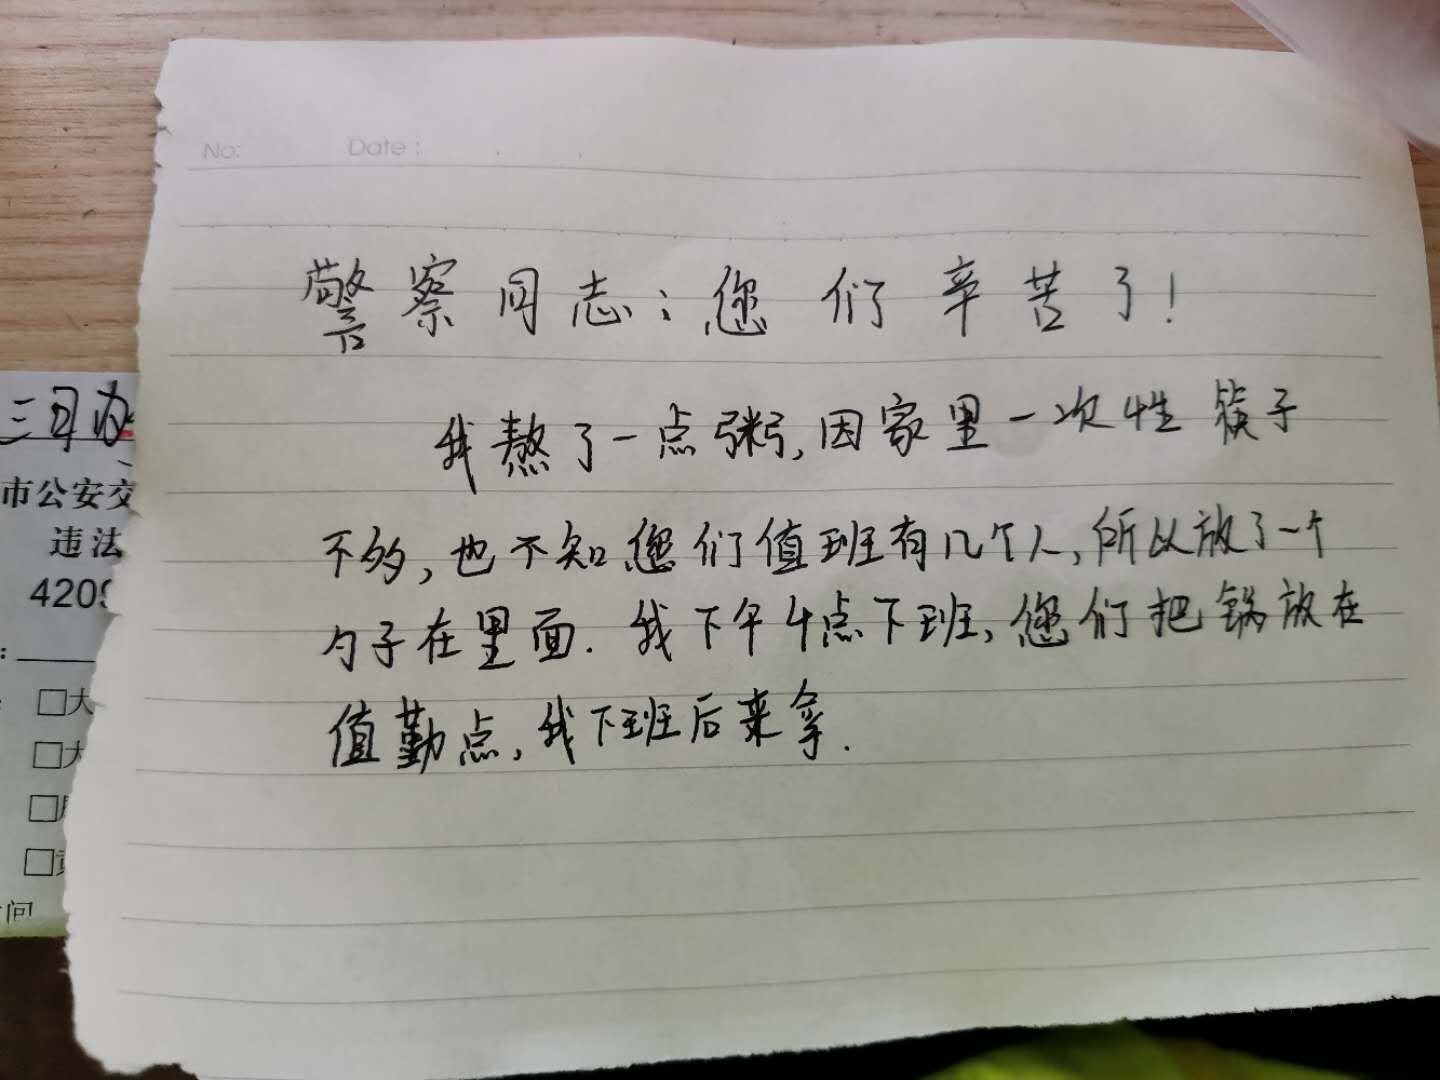 No:
Date:
警察同志:您们辛苦了!
我熬了一点粥,因家里一次性筷子
不够,也不知您们值班有几个人,所以放了一个
勺子在里面.我下午4点下班,您们把锅放在
值勤点,我下班后来拿.
市公安交
违法
4209
:
□大
□大
□
□
间